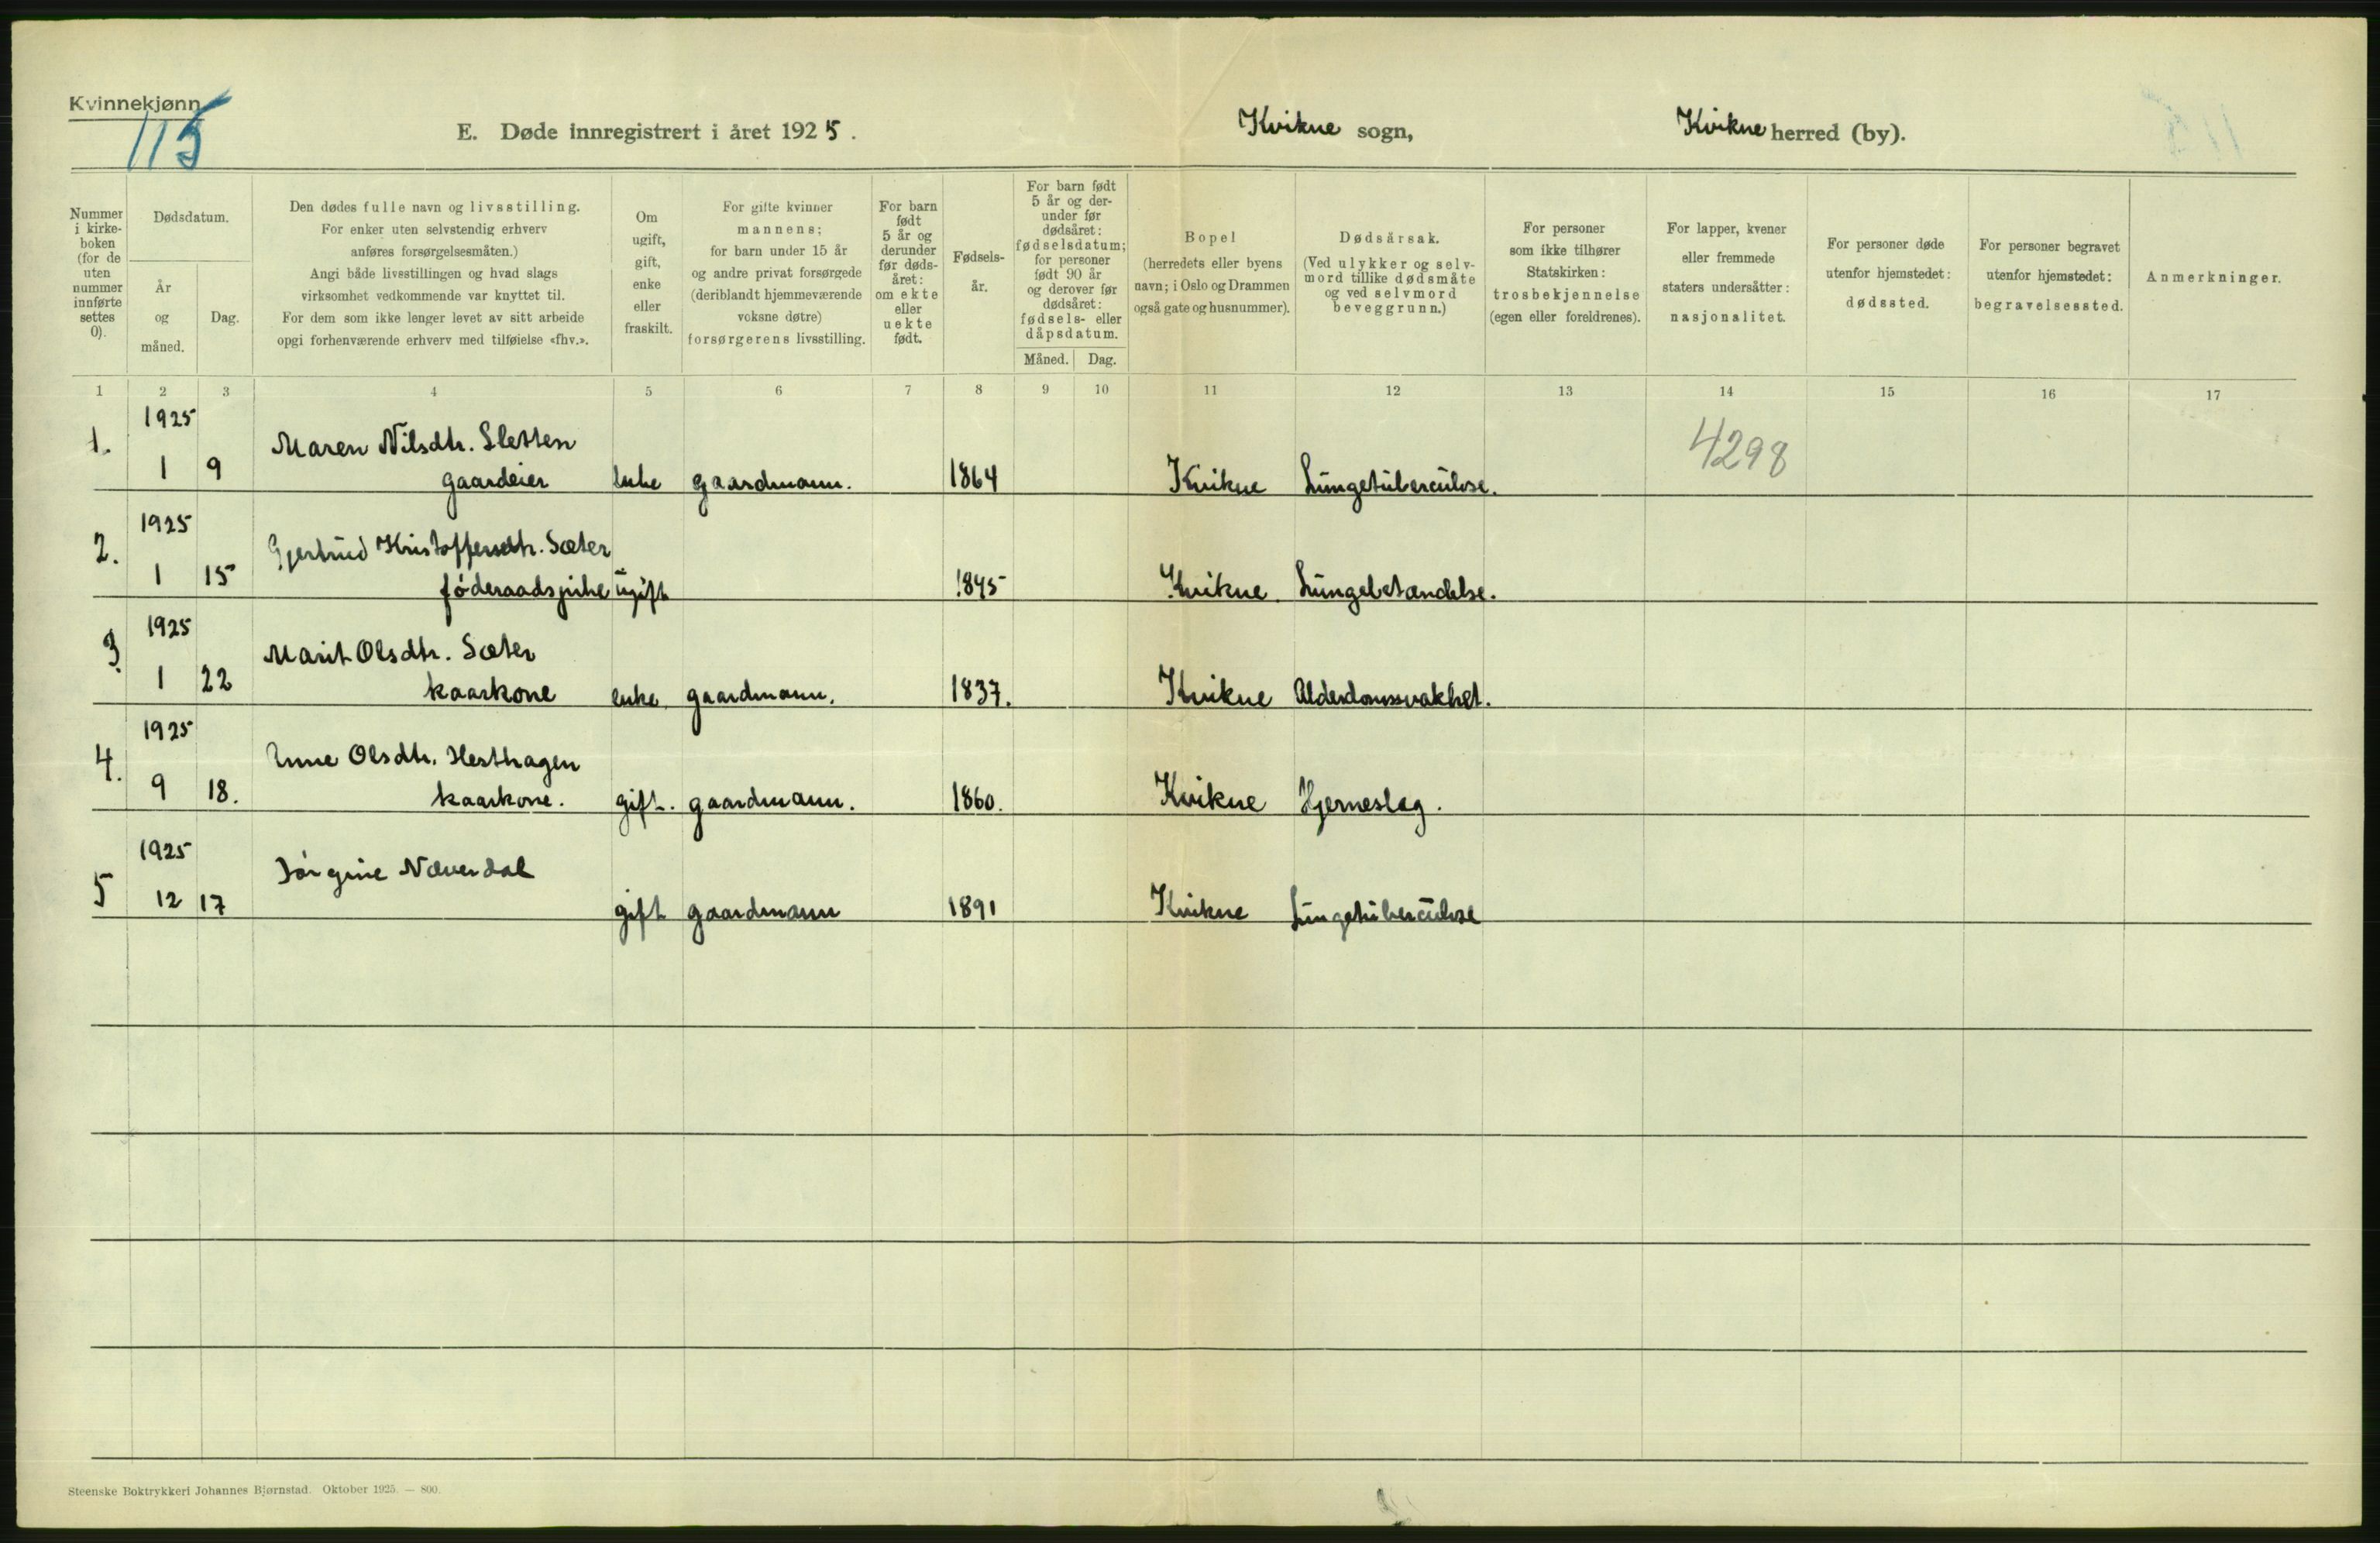 Kvinnekjønn
115
E. Døde innregistrert i året 1925.
Kvikne sogn,
Kvikne herred (by).
Nummer
i kirke-
boken
(for de
uten
nummer
innførte
settes
0).
Dødsdatum.
År
og
måned.
Dag.
Den dødes fulle navn og livsstilling.
For enker uten selvstendig erhverv
anføres forsørgelsesmåten.)
Angi både livsstillingen og hvad slags
virksomhet vedkommende var knyttet til.
For dem som ikke lenger levet av sitt arbeide
opgi forhenværende erhverv med tilføielse «fhv.».
Om
ugift,
gift,
enke
eller
fraskilt.
For gifte kvinner
mannens;
for barn under 15 år
og andre privat forsørgede
(deriblandt hjemmeværende
voksne døtre)
forsørgerens livsstilling.
For barn
født
5 år og
derunder
før døds-
året:
om ekte
eller
uekte
født.
Fødsels-
år.
For barn født
5 år og der-
under før
dødsåret:
fødselsdatum;
for personer
født 90 år
og derover før
dødsåret:
fødsels- eller
dåpsdatum.
Måned. Dag.
Bopel
(herredets eller byens
navn; i Oslo og Drammen
også gate og husnummer).
Dødsårsak.
(Ved ulykker og selv-
mord tillike dødsmåte
og ved selvmord
beveggrunn.)
For personer
som ikke tilhører
Statskirken:
trosbekjennelse
(egen eller foreldrenes).
For lapper, kvener
eller fremmede
staters undersåtter:
nasjonalitet.
For personer døde
utenfor hjemstedet:
dødssted.
For personer begravet
utenfor hjemstedet:
begravelsessted.
Anmerkninger.
1 2 3 4 5 6 7 8 9 10 11 12 13 14 15 16 17
1925
1. Maren Nilsdtr. Sletten 4298
1 9 gaardeier enke gaardmann. 1864 Kvikne Lungetuberculose.
1925
2. Gjertrud Kristoffersdtr. Sæter
1 15 føderaadspike ugift 1845 Kvikne Lungebetændelse.
1925
3. Marit Olsdtr. Sæter
1 22 kaarkone enke gaardmann. 1837. Kvikne Alderdomssvakhet.
1925
4. Anne Olsdtr. Hesthagen
9 18. kaarkone. gift. gaardmann. 1860. Kvikne Hjerneslag.
1925
5 Jørgine Næverdal
12 17 gift gaardmann 1891 Kvikne Lungetuberculose
Steenske Boktrykkeri Johannes Bjørnstad. Oktober 1925. — 800.